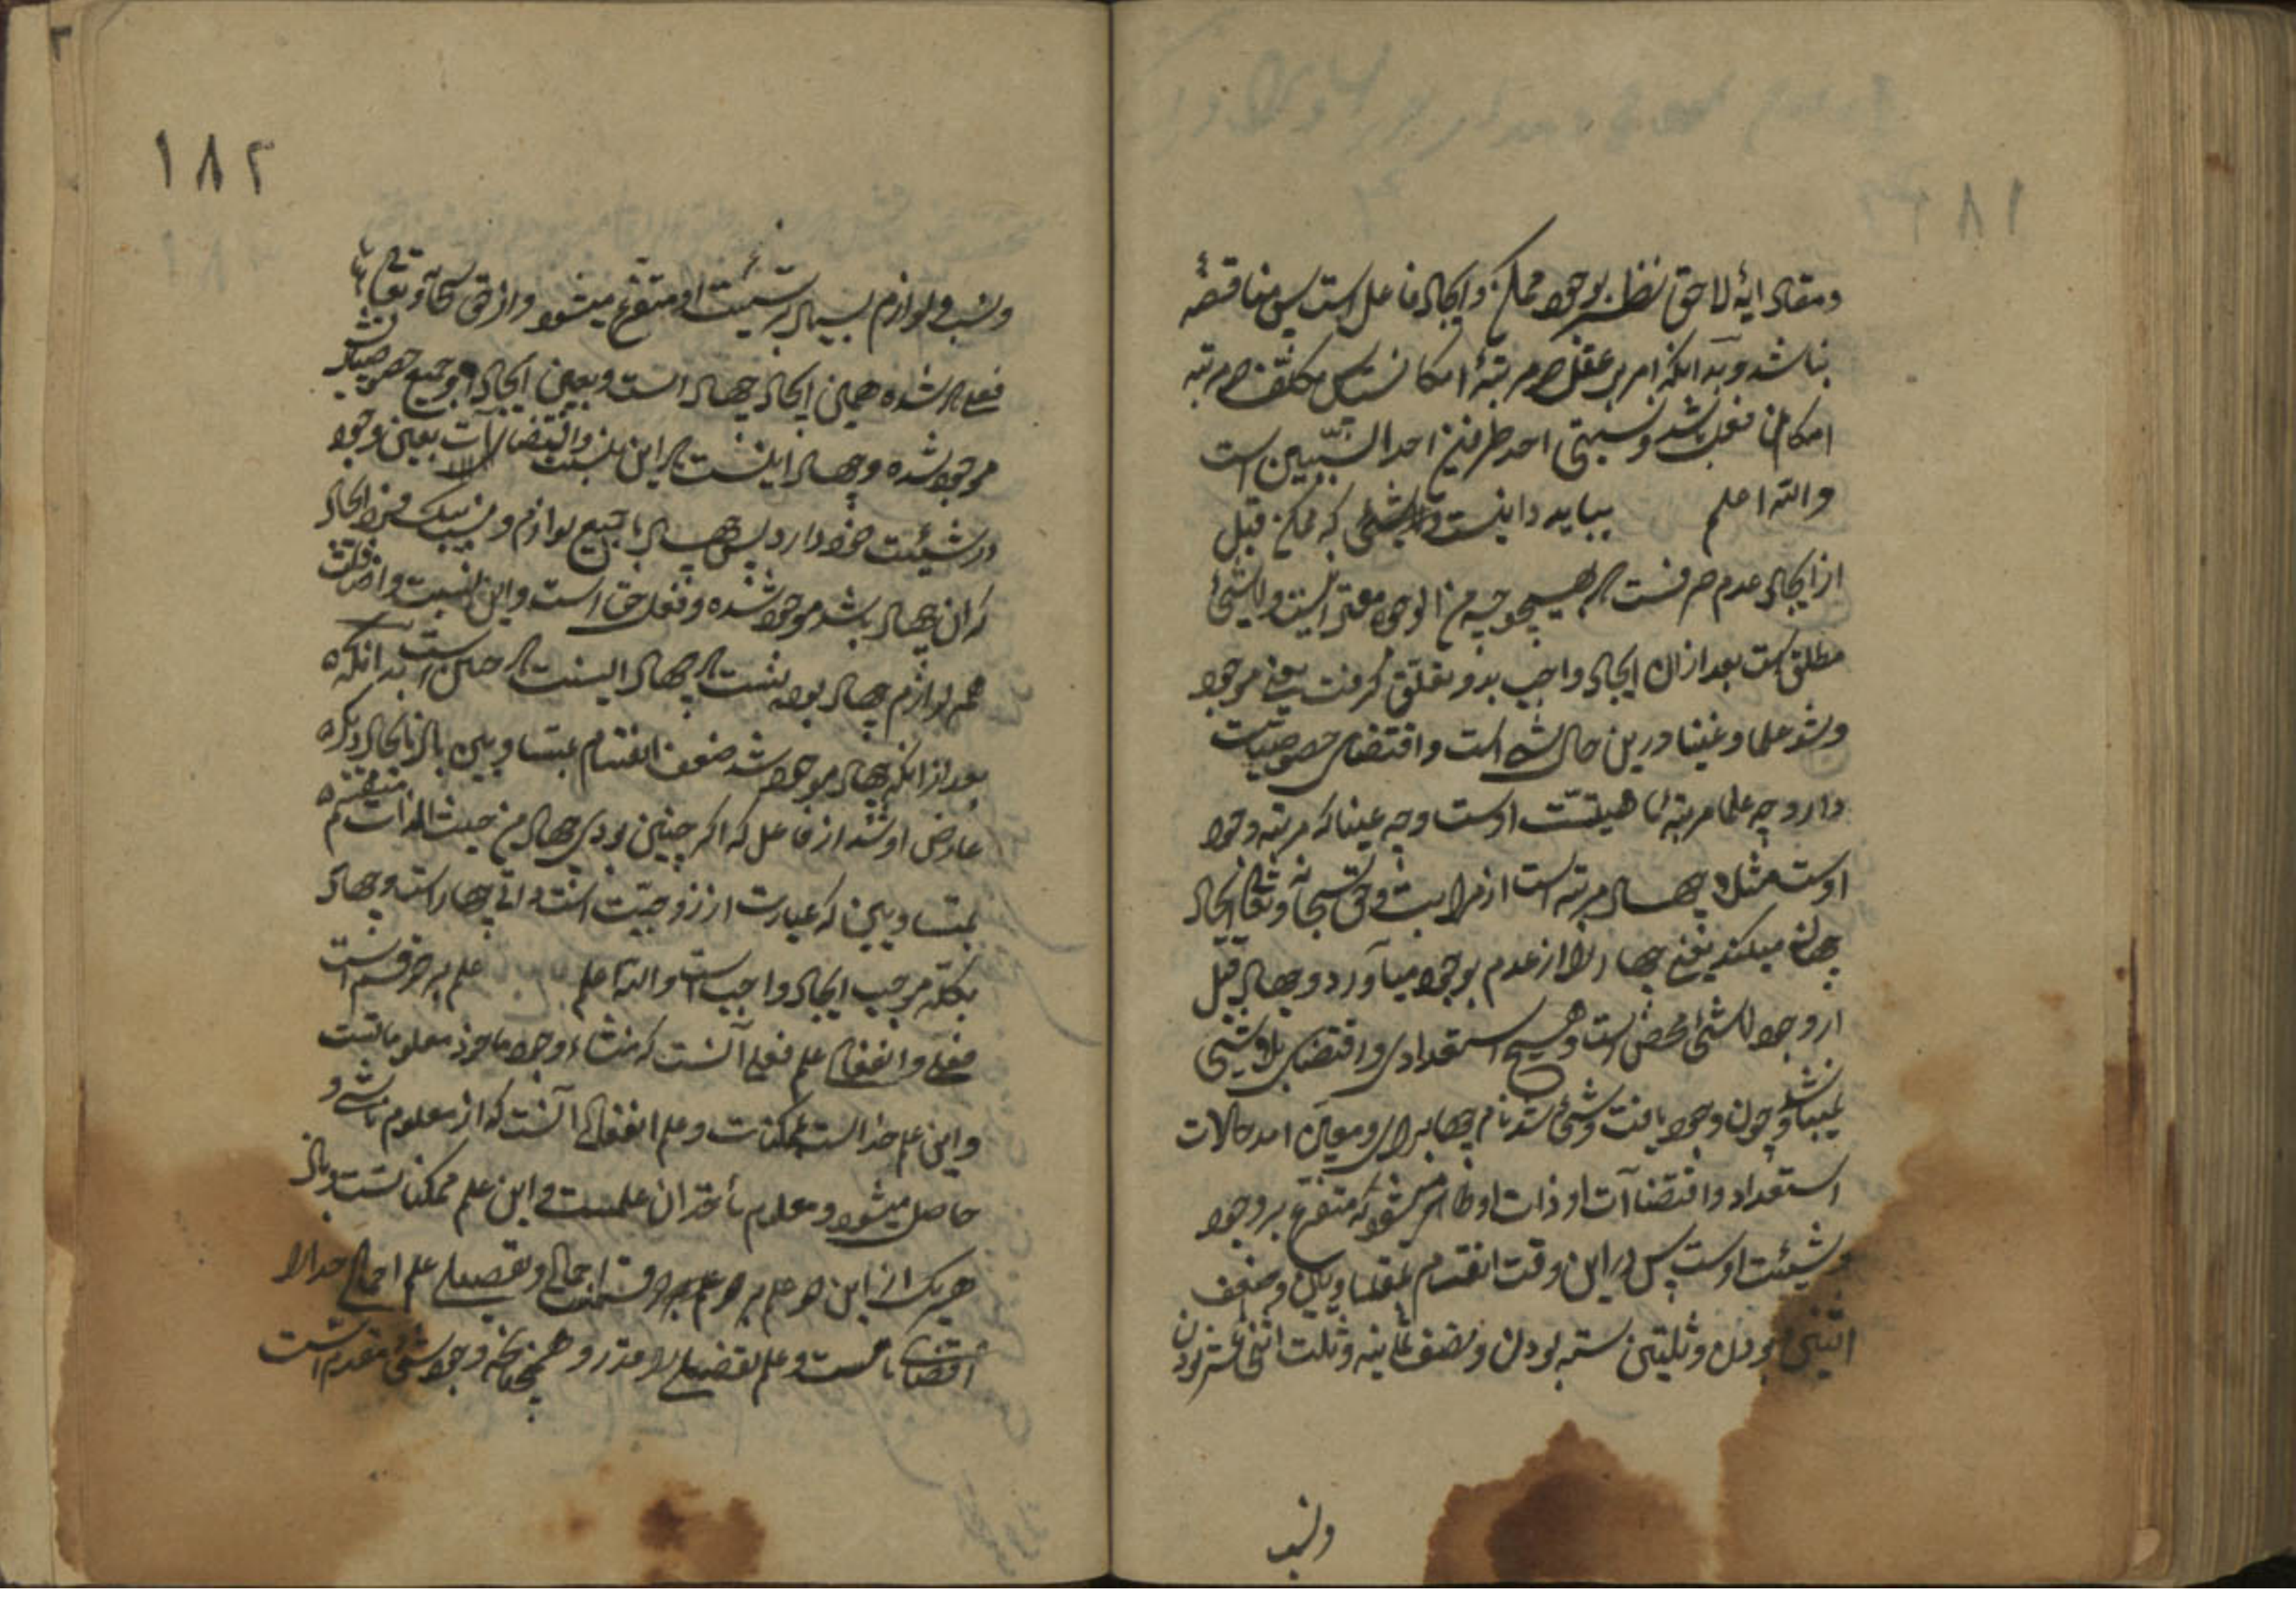 ۱۸۱
ومفاد ایهٔ لاحق نظر بوجود ممکن وایجاد فاعل است پس مناقضه
نباشد وبدانکه امر بر عقل در مرتبهٔ امکانست پس مکلف در مرتبه
امکان فعل باشد ونسبتی احد طرفین احد السببین است
والله اعلم بباید دانست که ممکن قبل
از ایجاد عدم صرفست که بهیچوجه من الوجوه معتبر نیست ولاشیٔ
مطلق است بعد از ان ایجاد واجب بدو تعلق کرفت یعنی موجود
وشد علما وعینا درین حال شیٔ است واقتضای خصوصیات
دارد چه علما مرتبه ماهیت اوست وچه عینا که مرتبه وجود
اوست مثلا چهار مرتبه است از مراتب وحق سبحانه وتعالی ایجاد
چهار میکند یعنی چهار را از عدم بوجود میآورد وچهار قبل
از وجود لاشیٔ محض است وهیچ استعدادی واقتضای بلاشیٔ
نمیباشد وچون وجود یافت وشیٔ شد نام چهار برای او معین امد حالات
استعداد واقتضاآت او ذات او ظاهر میشود که متفرع بر وجود
وشیئت اوست پس در این وقت انقسام بمتساویین وضعف
اثنین بودن وثلثین سته بودن ونصف ثمانیه وثلث اثنی عشر بودن
ونسب
۱۸۲
ونسب ولوازم بسیار بر شیئت او متفرع میشود واز حق سبحانه وتعالی
فعلی که شده همین ایجاد چهار است وبعین ایجاد او جمیع خصوصیاتش
موجود شده وچهار اینست که این نسبت واقتضاآت بعین وجود
در شیئت خود دارد پس چهار با جمیع لوازم ونسب بیک فرد ایجاد
که ان چهار باشد موجود شده وفعل حق است واین نسبت واضافات
همه لوازم چهار بودنست که چهار اینست که حاصل است نه انکه
بعد از انکه چهار موجود شد ضعف انقسام بمتساویین باز بایجاد دیکر
عارض او شد از فاعل که اکر چنین بودی چهار من حیث الذات منقسم
بمتساویین که عبارت از زوجیت است ذاتی چهار است وچهار
بکله موجب ایجاد واجب است والله اعلم علم بر دو قسم است
فعلی وانفعالی علم فعلی آنست که منشاء وجود ماخوذ معلومات است
واین علم خداست بممکنات وعلم انفعالی آنست که از معلوم ناشی و
حاصل میشود ومعلوم ماخذ ان علمست واین علم ممکناتست وباز
هر یک از این دو علم بر دو قسمند اجمالی وتفصیلی علم اجمالی خدا را
اقتضای ذاتست وعلم تفصیلی را وهمچنانکه وجود شیٔ مقدم است